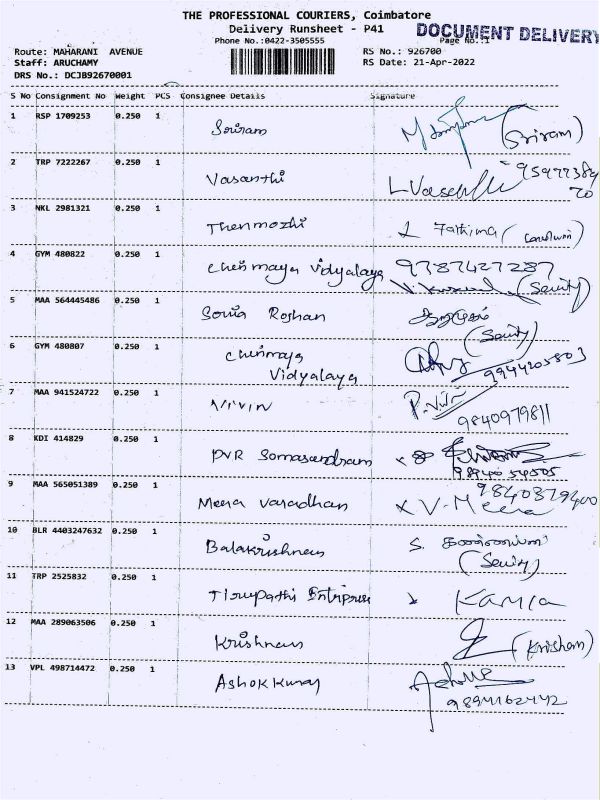 THE PROFESSIONAL COURIERS, Coimbatore
Delivery Runsheet - P41
DOCUMENT DELIVERY
Phone No.:0422-3505555
Page No.:1
Route: MAHARANI AVENUE
RS No.: 926700
Staff: ARUCHAMY
RS Date: 21-Apr-2022
DRS No.: DCJB92670001
S No Consignment No Weight PCS Consignee Details Signature
1 RSP 1709253 0.250 1
Sriram (Sriram)
2 TRP 7222267 0.250 1
Vasanthi L Vasanthi
3 NKL 2981321 0.250 1
Thenmozhi Fathima
4 GYM 480822 0.250 1
Chenmaya Vidyalaya 9787427287
5 MAA 564445486 0.250 1
Sonia Roshan
6 GYM 480807 0.250 1
Chinmaya
Vidyalaya 9944205803
7 MAA 941524722 0.250 1
Vivin
9840979811
8 KDI 414829 0.250 1
PVR Somasundram
98940 54505
9 MAA 565051389 0.250 1
Meera Varadhan x V-Meera
9840379400
10 BLR 4403247632 0.250 1
Balakrishnan
11 TRP 2525832 0.250 1
Tirupathi Entriprises Kamla
12 MAA 289063506 0.250 1
Krishnan
13 VPL 498714472 0.250 1
Ashok Kumar
9894162442